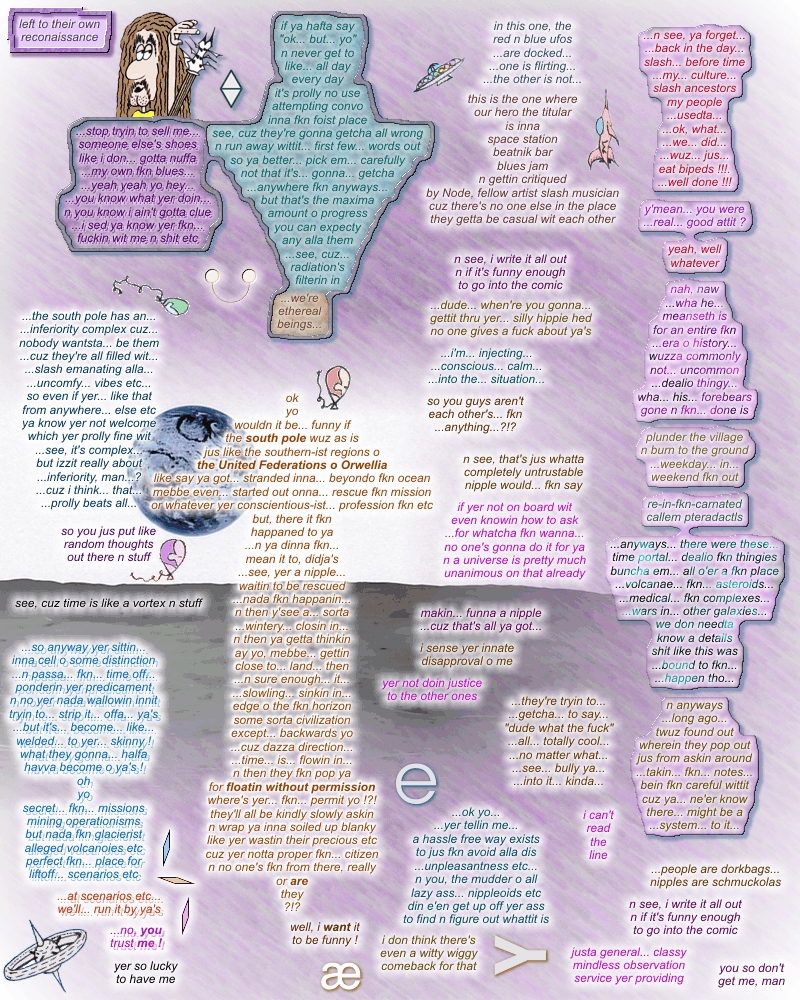 left to their own
reconaissance
if ya hafta say
"ok... but... yo"
n never get to
like... all day
every day
it's prolly no use
attempting convo
inna fkn foist place
see, cuz they're gonna getcha all wrong
n run away wittit... first few... words out
so ya better... pick em... carefully
not that it's... gonna... getcha
...anywhere fkn anyways...
but that's the maxima
amount o progress
you can expecty
any alla them
...see, cuz...
radiation's
filterin in
...we're
ethereal
beings...
...stop tryin to sell me...
someone else's shoes
like i don... gotta nuffa
...my own fkn blues...
...yeah yeah yo hey...
...you know what yer doin...
n you know i ain't gotta clue
...i sed ya know yer fkn...
fuckin wit me n shit etc
in this one, the
red n blue ufos
...are docked...
...one is flirting...
...the other is not...
this is the one where
our hero the titular
is inna
space station
beatnik bar
blues jam
n gettin critiqued
by Node, fellow artist slash musician
cuz there's no one else in the place
they getta be casual wit each other
n see, i write it all out
n if it's funny enough
to go into the comic
...dude... when're you gonna...
gettit thru yer... silly hippie hed
no one gives a fuck about ya's
...i'm... injecting...
...conscious... calm...
...into the... situation...
so you guys aren't
each other's... fkn
...anything...?!?
n see, that's jus whatta
completely untrustable
nipple would... fkn say
if yer not on board wit
even knowin how to ask
...for whatcha fkn wanna...
no one's gonna do it for ya
n a universe is pretty much
unanimous on that already
...n see, ya forget...
...back in the day...
slash... before time
...my... culture...
slash ancestors
my people
...usedta...
...ok, what...
...we... did...
...wuz... jus...
eat bipeds !!!.
...well done !!!
y'mean... you were
...real... good attit ?
yeah, well
whatever
nah, naw
...wha he...
meanseth is
for an entire fkn
...era o history...
wuzza commonly
not... uncommon
...dealio thingy...
wha... his... forebears
gone n fkn... done is
plunder the village
n burn to the ground
...weekday... in...
weekend fkn out
re-in-fkn-carnated
callem pteradactls
...anyways... there were these...
time portal... dealio fkn thingies
buncha em... all o'er a fkn place
...volcanae... fkn... asteroids...
...medical... fkn complexes...
...wars in... other galaxies...
we don needta
know a details
shit like this was
...bound to fkn...
...happen tho...
n anyways
...long ago...
twuz found out
wherein they pop out
jus from askin around
...takin... fkn... notes...
bein fkn careful wittit
cuz ya... ne'er know
there... might be a
...system... to it...
...the south pole has an...
...inferiority complex cuz...
nobody wantsta... be them
...cuz they're all filled wit...
...slash emanating alla...
...uncomfy... vibes etc...
so even if yer... like that
from anywhere... else etc
ya know yer not welcome
which yer prolly fine wit
...see, it's complex...
but izzit really about
...inferiority, man...?
...cuz i think... that...
...prolly beats all...
so you jus put like
random thoughts
out there n stuff
ok
yo
wouldn it be... funny if
the south pole wuz as is
jus like the southern-ist regions o
the United Federations o Orwellia
like say ya got... stranded inna... beyondo fkn ocean
mebbe even... started out onna... rescue fkn mission
or whatever yer conscientious-ist... profession fkn etc
but, there it fkn
happened to ya
...n ya dinna fkn...
mean it to, didja's
...see, yer a nipple...
waitin to be rescued
...nada fkn happanin...
n then y'see a... sorta
...wintery... closin in...
n then ya getta thinkin
ay yo, mebbe... gettin
close to... land... then
...n sure enough... it...
...slowling... sinkin in...
edge o the fkn horizon
some sorta civilization
except... backwards yo
...cuz dazza direction...
...time... is... flowin in...
n then they fkn pop ya
for floatin without permission
where's yer... fkn... permit yo !?!
they'll all be kindly slowly askin
n wrap ya inna soiled up blanky
like yer wastin their precious etc
cuz yer notta proper fkn... citizen
n no one's fkn from there, really
or are
they
?!?
well, i want it
to be funny !
see, cuz time is like a vortex n stuff
...so anyway yer sittin...
inna cell o some distinction
...n passa... fkn... time off...
ponderin yer predicament
n no yer nada wallowin innit
tryin to... strip it... offa... ya's
...but it's... become... like...
welded... to yer... skinny !
what they gonna... halfa
havva become o ya's !
oh
yo
secret... fkn... missions
mining operationisms
but nada fkn glacierist
alleged volcanoies etc
perfect fkn... place for
liftoff... scenarios etc
...at scenarios etc...
we'll... run it by ya's
...no, you
trust me !
yer so lucky
to have me
makin... funna a nipple
...cuz that's all ya got...
i sense yer innate
disapproval o me
yer not doin justice
to the other ones
...they're tryin to...
...getcha... to say...
"dude what the fuck"
...all... totally cool...
...no matter what...
...see... bully ya...
...into it... kinda...
e
...ok yo...
...yer tellin me...
a hassle free way exists
to jus fkn avoid alla dis
...unpleasantness etc...
n you, the mudder o all
lazy ass... nippleoids etc
din e'en get up off yer ass
to find n figure out whattit is
i can't
read
the
line
i don think there's
even a witty wiggy
comeback for that
æ
Y
...people are dorkbags...
nipples are schmuckolas
n see, i write it all out
n if it's funny enough
to go into the comic
justa general... classy
mindless observation
service yer providing
you so don't
get me, man